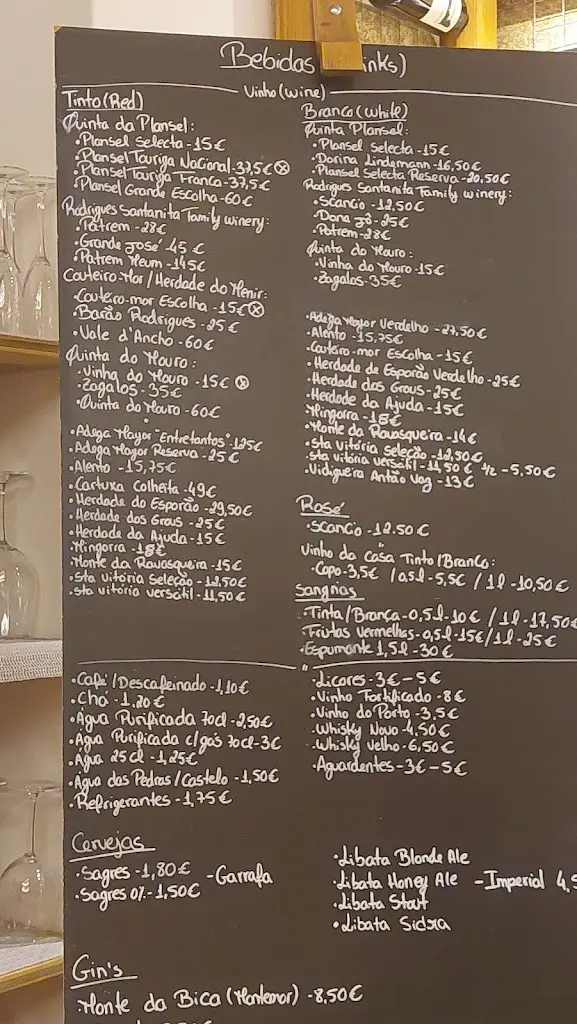 Bebidas inks)
Vinho (wine)
Tinto (Red)
Quinta da Plansel:
•Plansel Selecta - 15€
•Plansel Touriga Nacional - 37,5€ ⊗
•Plansel Touriga Franca - 37,5€
•Plansel Grande Escolha - 60€
Rodrigues Santanita Family winery:
•Patrem - 28€
•Grande José 45€
•Patrem Meum - 145€
Couteiro-Mor / Herdade do Menir:
•Couteiro-mor Escolha - 15€ ⊗
•Barão Rodrigues - 25€
•Vale d'Ancho - 60€
Quinta do Mouro:
•Vinha do Mouro - 15€ ⊗
•Zagalos - 35€
•Quinta do Mouro - 60€
•Adega Mayor "Entretantos" 125€
•Adega Mayor Reserva - 25€
•Alento - 15,75€
•Cartuxa Colheita - 49€
•Herdade do Esporão - 29,50€
•Herdade dos Grous - 25€
•Herdade da Ajuda - 15€
•Mingorra - 18€
•Monte da Ravasqueira - 15€
•Sta vitória Seleção - 12,50€
•Sta vitória versátil - 11,50€
Branco (white)
Quinta Plansel:
•Plansel Selecta - 15€
•Dorina Lindemann - 16,50€
•Plansel Selecta Reserva - 20,50€
Rodrigues Santanita Family winery:
•Scancio - 12,50€
•Dona Jô - 25€
•Patrem - 28€
Quinta do Mouro:
•Vinha do Mouro - 15€
•Zagalos - 35€
•Adega Mayor Verdelho - 27,50€
•Alento - 15,75€
•Couteiro-mor Escolha - 15€
•Herdade do Esporão Verdelho - 25€
•Herdade dos Grous - 25€
•Herdade da Ajuda - 15€
•Mingorra - 18€
•Monte da Ravasqueira - 14€
•Sta vitória seleção - 12,50€
•Sta vitória versátil - 11,50€ 1/2 - 5,50€
•Vidigueira Antão Vaz - 13€
Rosé
•Scancio - 12.50€
Vinho da Casa Tinto/Branco:
•Copo - 3,5€ / 0,5l - 5,5€ / 1l - 10,50€
Sangrias
•Tinta/Branca - 0,5l - 10€ / 1l - 17,50€
•Frutos vermelhos - 0,5l - 15€ / 1l - 25€
•Espumante 1,5l - 30€
•Café / Descafeinado - 1,10€
•Chá - 1.20€
•Água Purificada 70cl - 2,50€
•Água Purificada c/gás 70cl - 3€
•Água 25cl - 1,25€
•Água das Pedras / Castelo - 1,50€
•Refrigerantes - 1,75€
•Licores - 3€ - 5€
•Vinho Fortificado - 8€
•Vinho do Porto - 3,5€
•Whisky Novo - 4,50€
•Whisky Velho - 6,50€
•Aguardentes - 3€ - 5€
Cervejas
•Sagres - 1,80€ - Garrafa
•Sagres 0% - 1,50€
•Libata Blonde Ale
•Libata Honey Ale - Imperial 4,5
•Libata Stout
•Libata Sidra
Gin's
•Monte da Bica (Montemor) - 8,50€